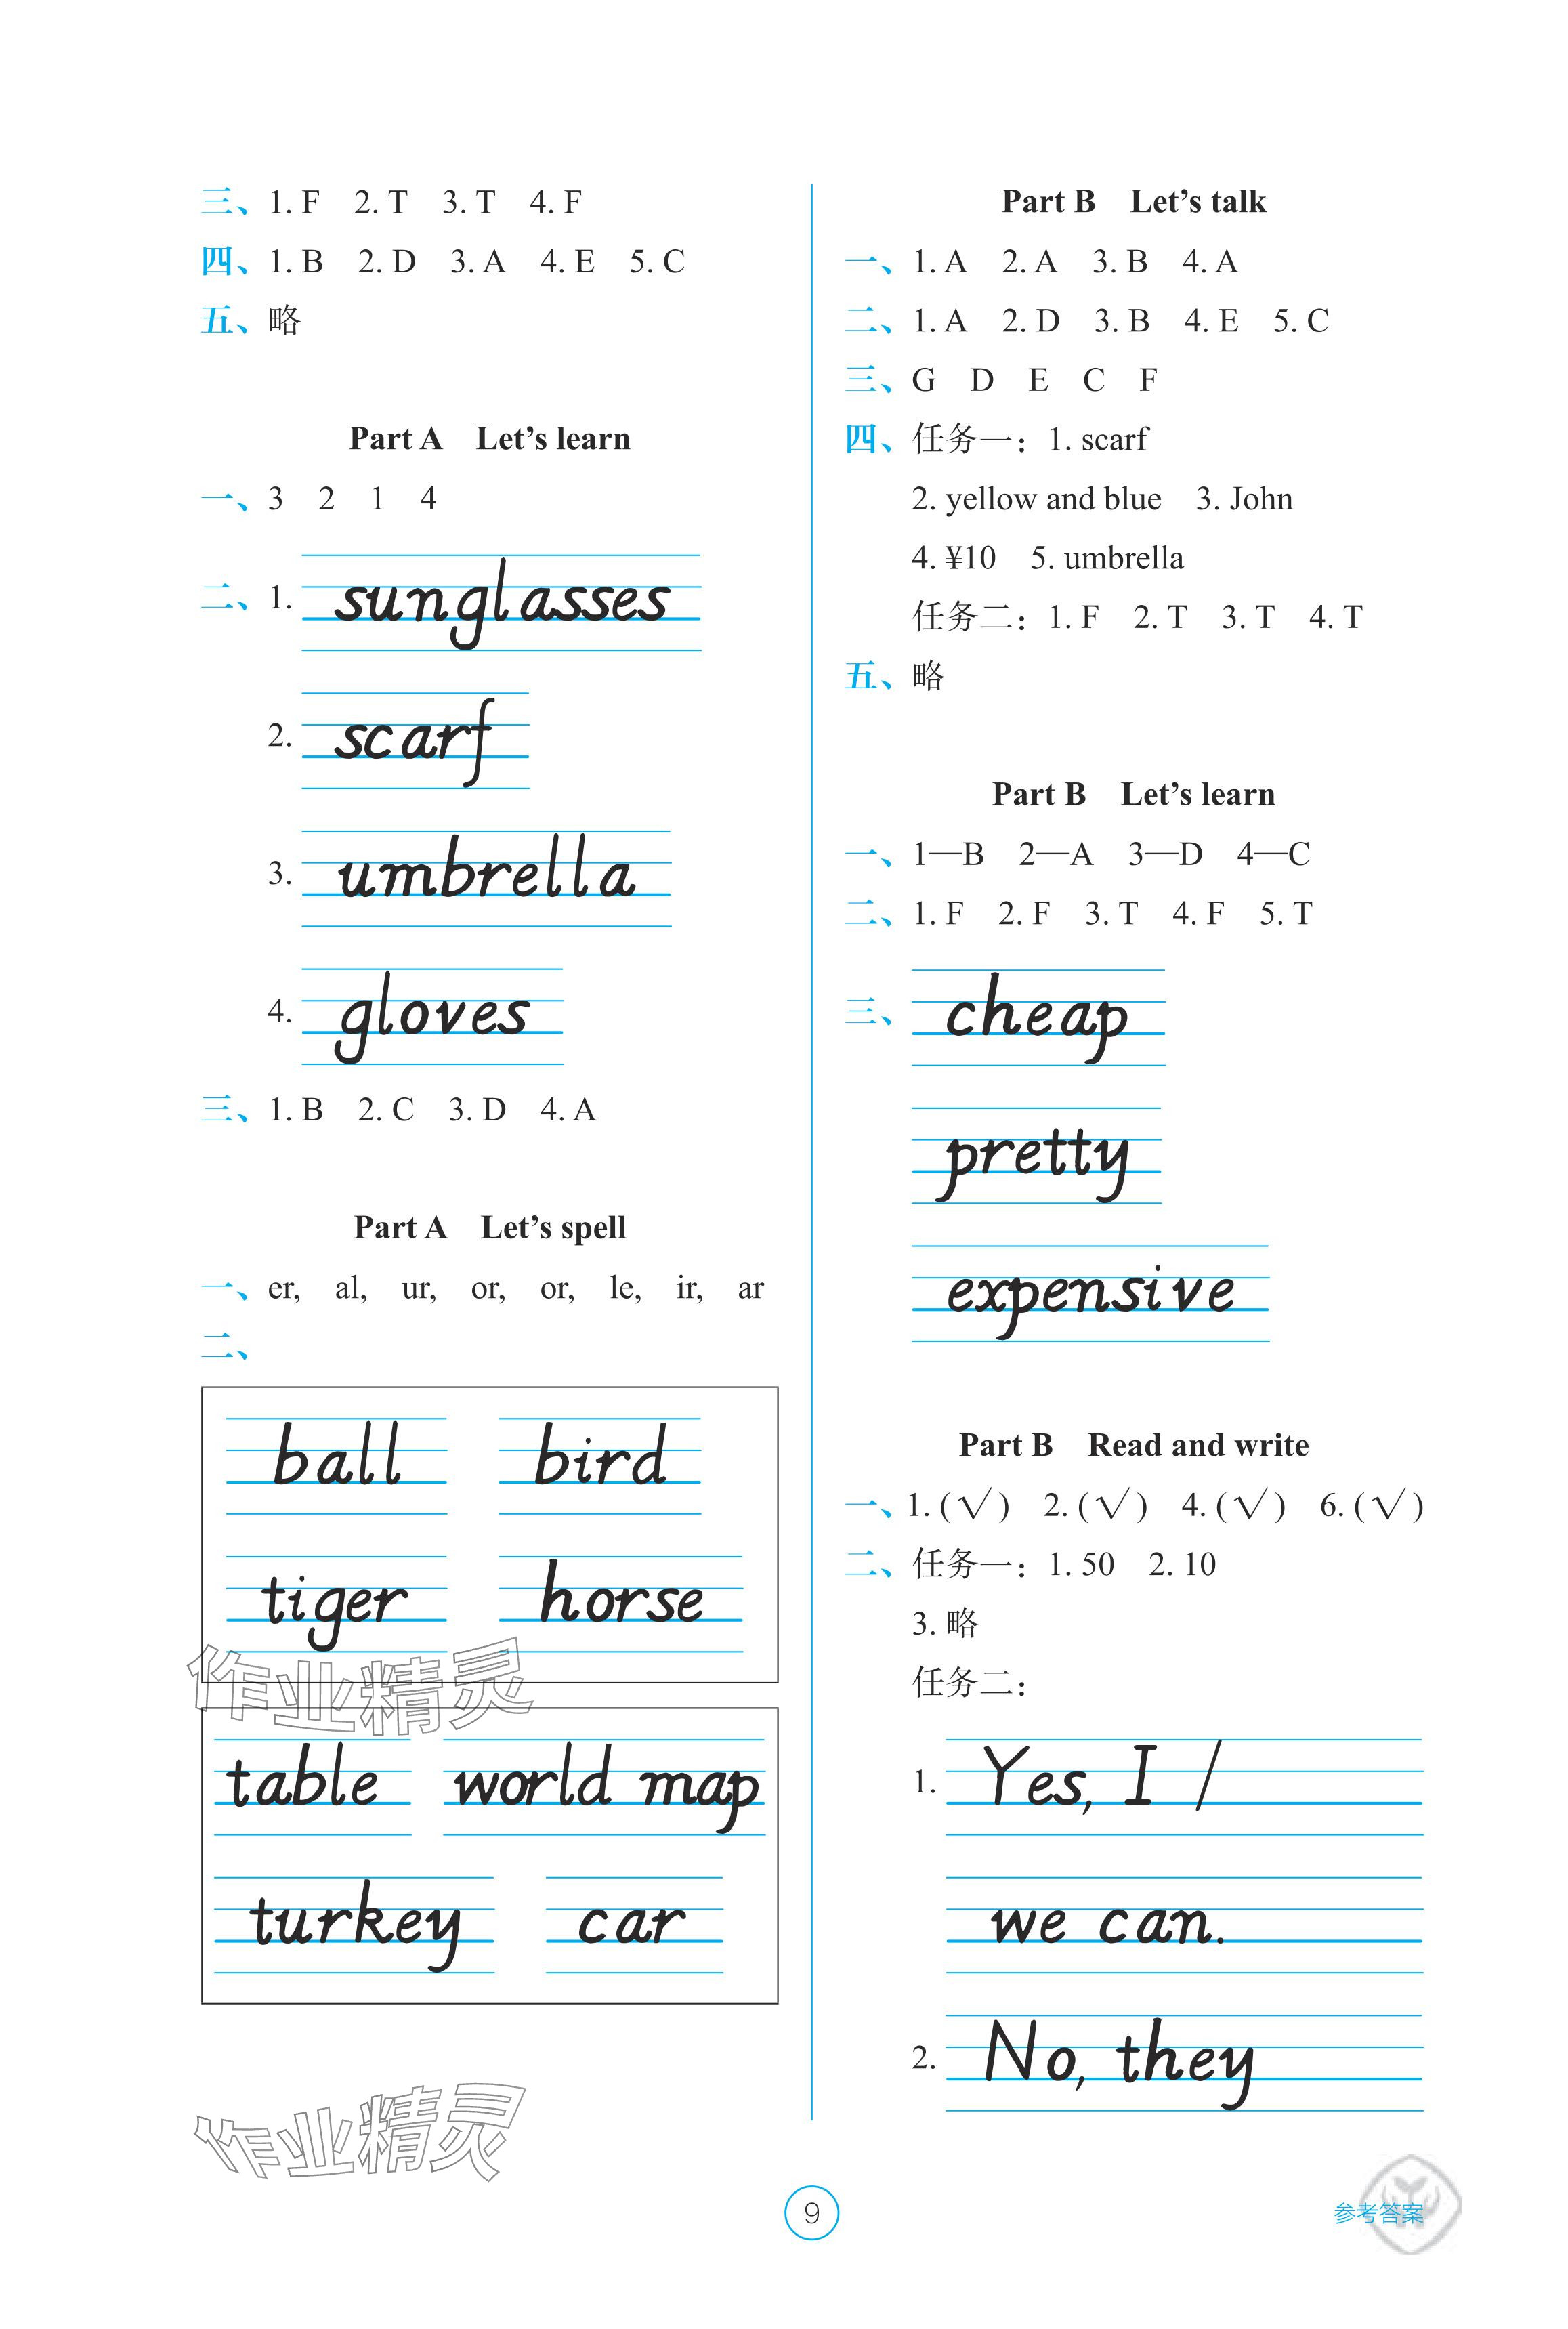 三、1. F 2. T 3. T 4. F
四、1. B 2. D 3. A 4. E 5. C
五、略
Part A Let's learn
一、3 2 1 4
二、1. sunglasses
2. scarf
3. umbrella
4. gloves
三、1. B 2. C 3. D 4. A
Part A Let's spell
一、er, al, ur, or, or, le, ir, ar
二、
ball bird
tiger horse
作业精灵
table world map
turkey car
作业精灵
Part B Let's talk
一、1. A 2. A 3. B 4. A
二、1. A 2. D 3. B 4. E 5. C
三、G D E C F
四、任务一：1. scarf
2. yellow and blue 3. John
4. ¥10 5. umbrella
任务二：1. F 2. T 3. T 4. T
五、略
Part B Let's learn
一、1—B 2—A 3—D 4—C
二、1. F 2. F 3. T 4. F 5. T
三、cheap
pretty
expensive
Part B Read and write
一、1. (√) 2. (√) 4. (√) 6. (√)
二、任务一：1. 50 2. 10
3. 略
任务二：
1. Yes, I /
we can.
2. No, they
9
参考答案